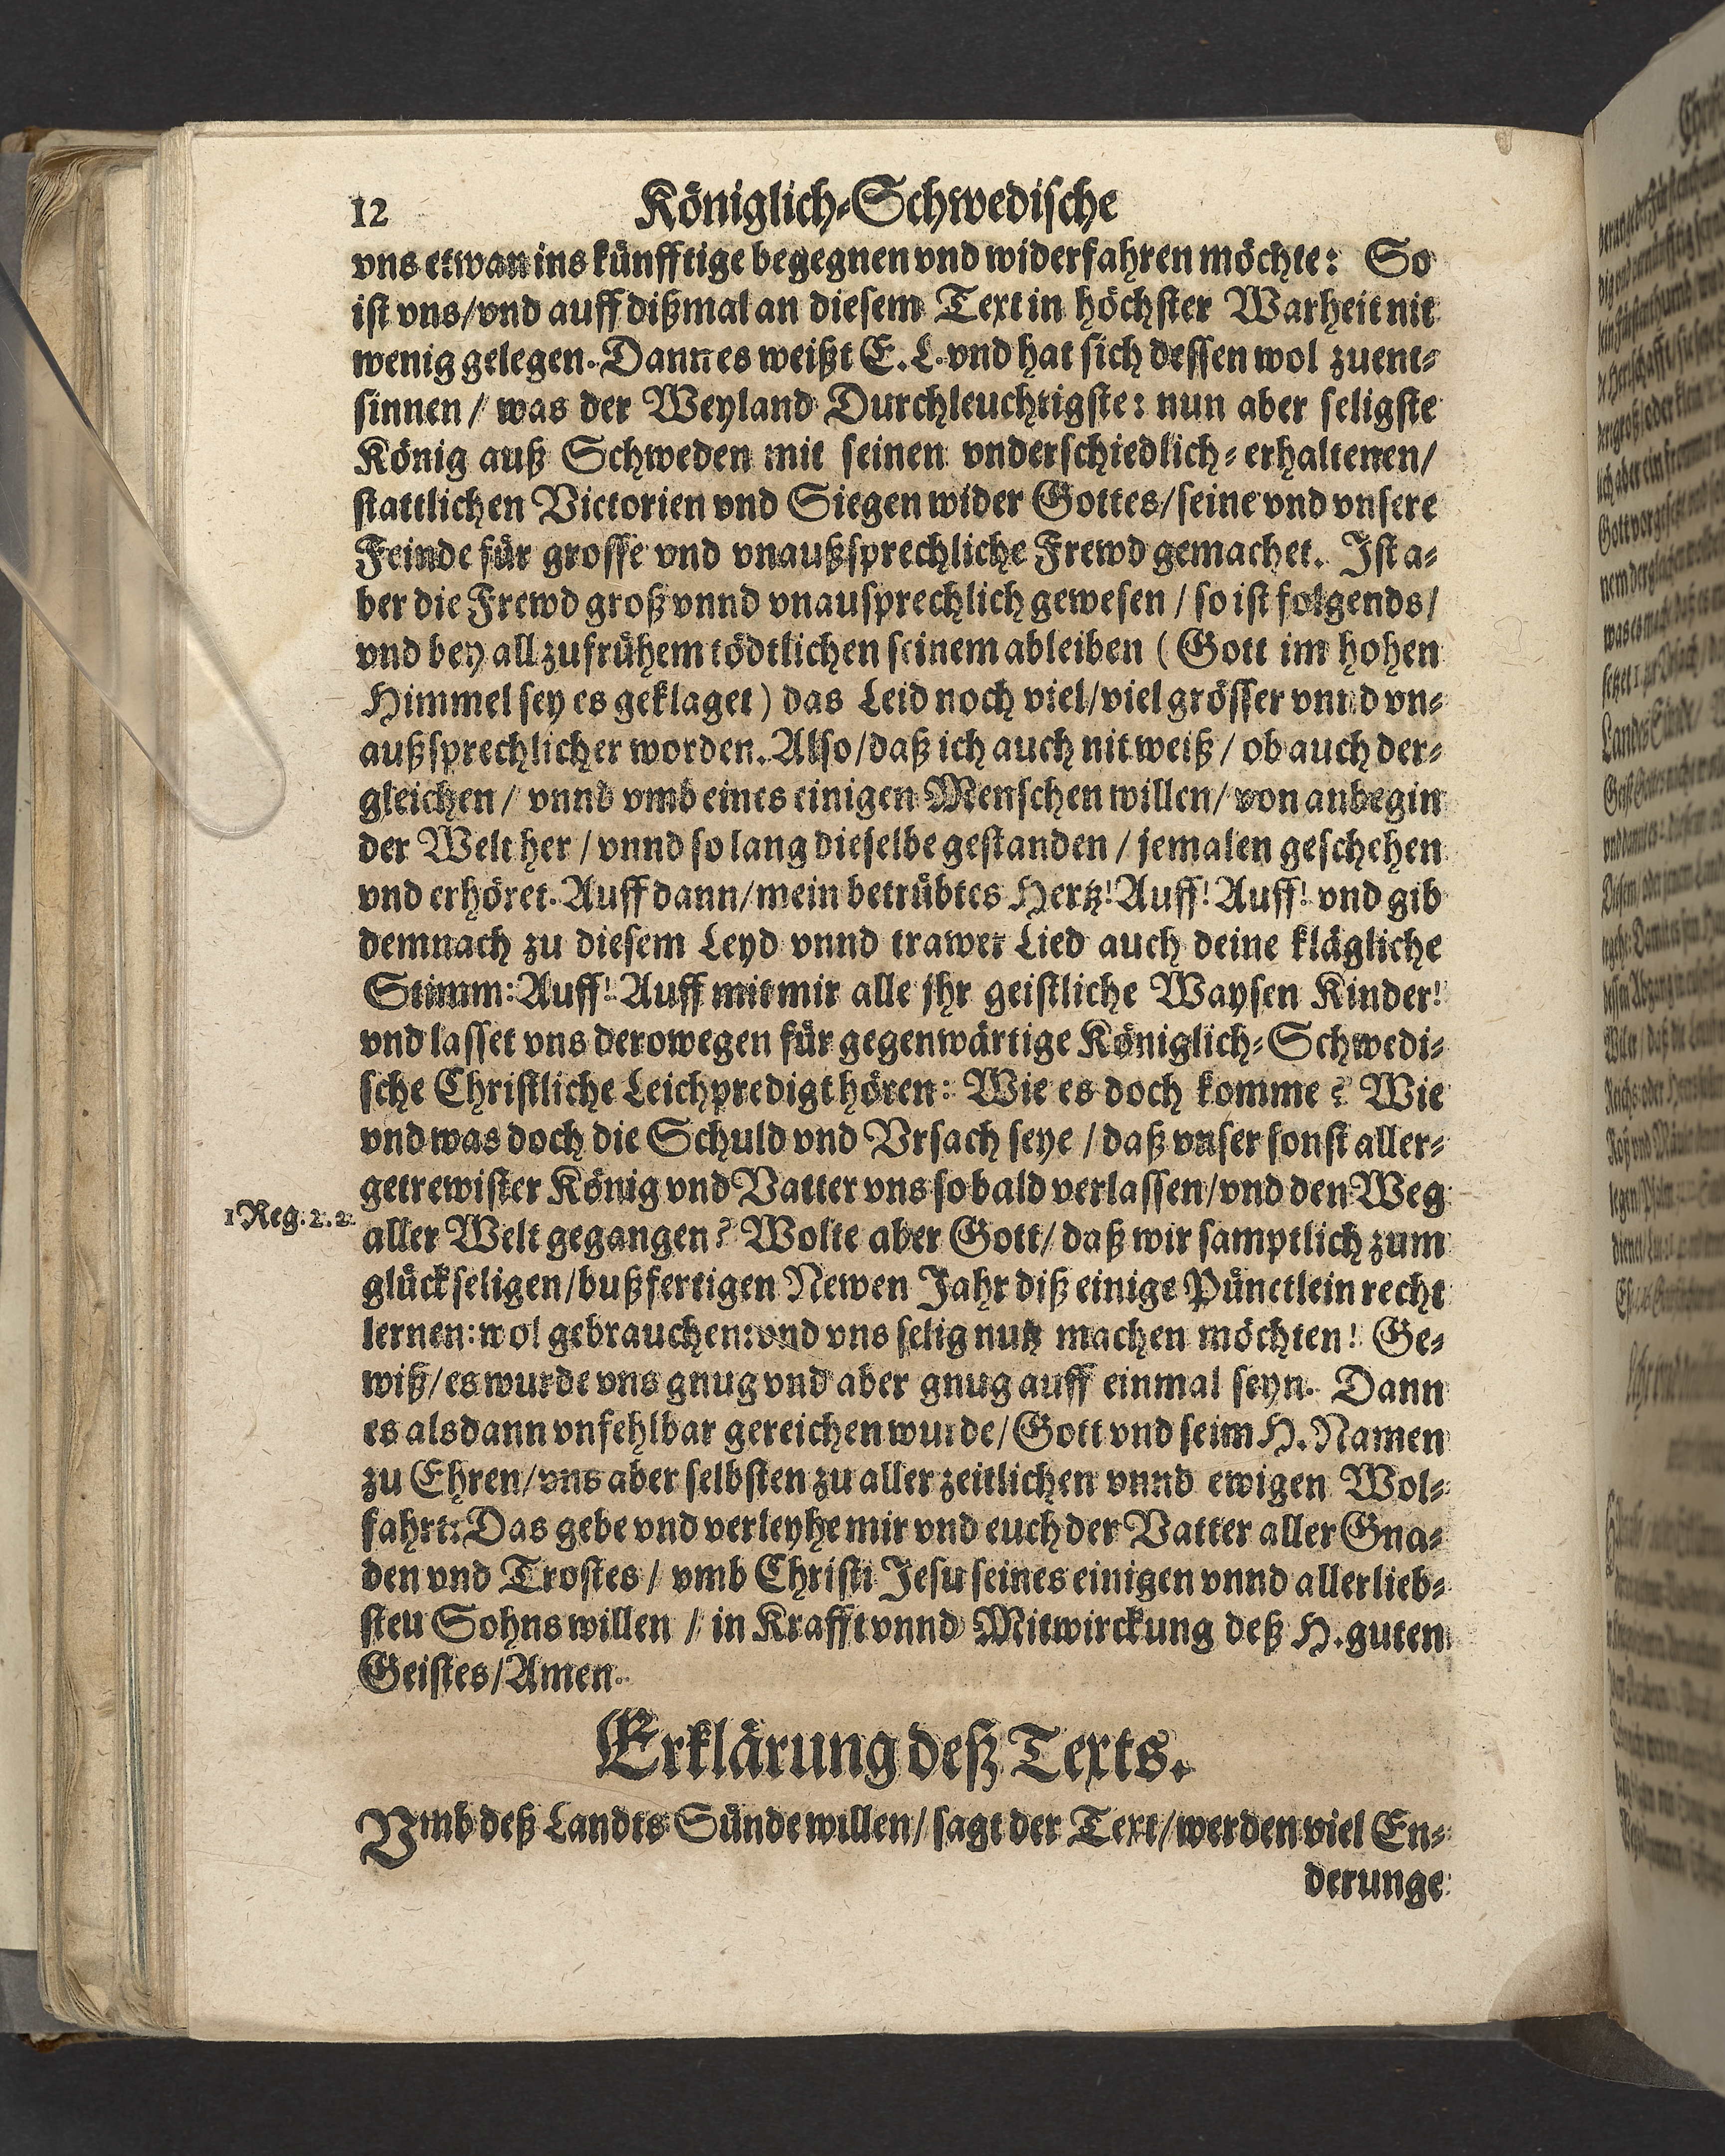 12 Königlich-Schwedische
vns etwan ins künfftige begegnen vnd widerfahren möchte: So
ist vns/vnd auff dißmal an diesem Text in höchster Warheit nit
wenig gelegen. Dann es weißt E. L. vnd hat sich dessen wol zuent-
sinnen / was der Weyland Durchleuchtigste: nun aber seligste
König auß Schweden mit seinen vnderschiedlich-erhaltenen/
stattlichen Victorien vnd Siegen wider Gottes/seine vnd vnsere
Feinde für grosse vnd vnaußsprechliche Frewd gemachet. Ist a-
ber die Frewd groß vnnd vnausprechlich gewesen / so ist folgends/
vnd bey allzufrühem tödtlichen seinem ableiben ( Gott im hohen
Himmel sey es geklaget ) das Leid noch viel/viel grösser vnnd vn-
außsprechlicher worden. Also/daß ich auch nit weiß / ob auch der-
gleichen / vnnd vmb eines einigen Menschen willen/ von anbegin
der Welt her / vnnd so lang dieselbe gestanden / jemalen geschehen
vnd erhöret. Auff dann/mein betrübtes Hertz! Auff! Auff! vnd gib
demnach zu diesem Leyd vnnd trawer Lied auch deine klägliche
Stimm: Auff! Auff mit mir alle jhr geistliche Waysen Kinder!
vnd lasset vns derowegen für gegenwärtige Königlich-Schwedi-
sche Christliche Leichpredigt hören: Wie es doch komme? Wie
vnd was doch die Schuld vnd Vrsach seye / daß vnser sonst aller-
getrewister König vnd Vatter vns so bald verlassen/vnd den Weg
1 Reg. 2. 2.
aller Welt gegangen? Wolte aber Gott/ daß wir samptlich zum
glückseligen/bußfertigen Newen Jahr diß einige Pünctlein recht
lernen: wol gebrauchen: vnd vns selig nutz machen möchten! Ge-
wiß/es wurde vns gnug vnd aber gnug auff einmal seyn. Dann
es alsdann vnfehlbar gereichen wurde/Gott vnd seim H. Namen
zu Ehren/vns aber selbsten zu aller zeitlichen vnnd ewigen Wol-
fahrt: Das gebe vnd verleyhe mir vnd euch der Vatter aller Gna-
den vnd Trostes / vmb Christi Jesu seines einigen vnnd allerlieb-
steu Sohns willen / in Krafft vnnd Mitwirckung deß H. guten
Geistes/Amen.
Erklärung deß Texts.
Vmb deß Landts Sünde willen/ sagt der Text/werden viel En-
derunge